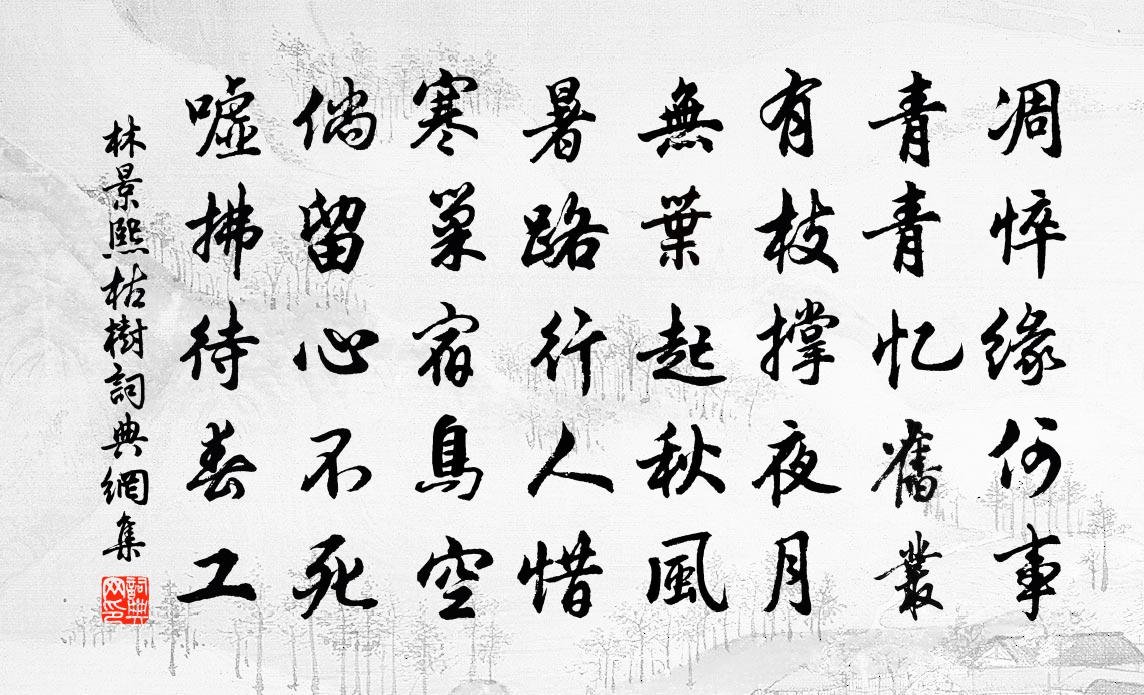 凋悴緣何事
青青忆舊叢
有枝撐夜月
無葉起秋風
暑路行人惜
寒巢宿鳥空
倘留心不死
噓拂待春工
林景熙枯樹詞典網集
詞典网印